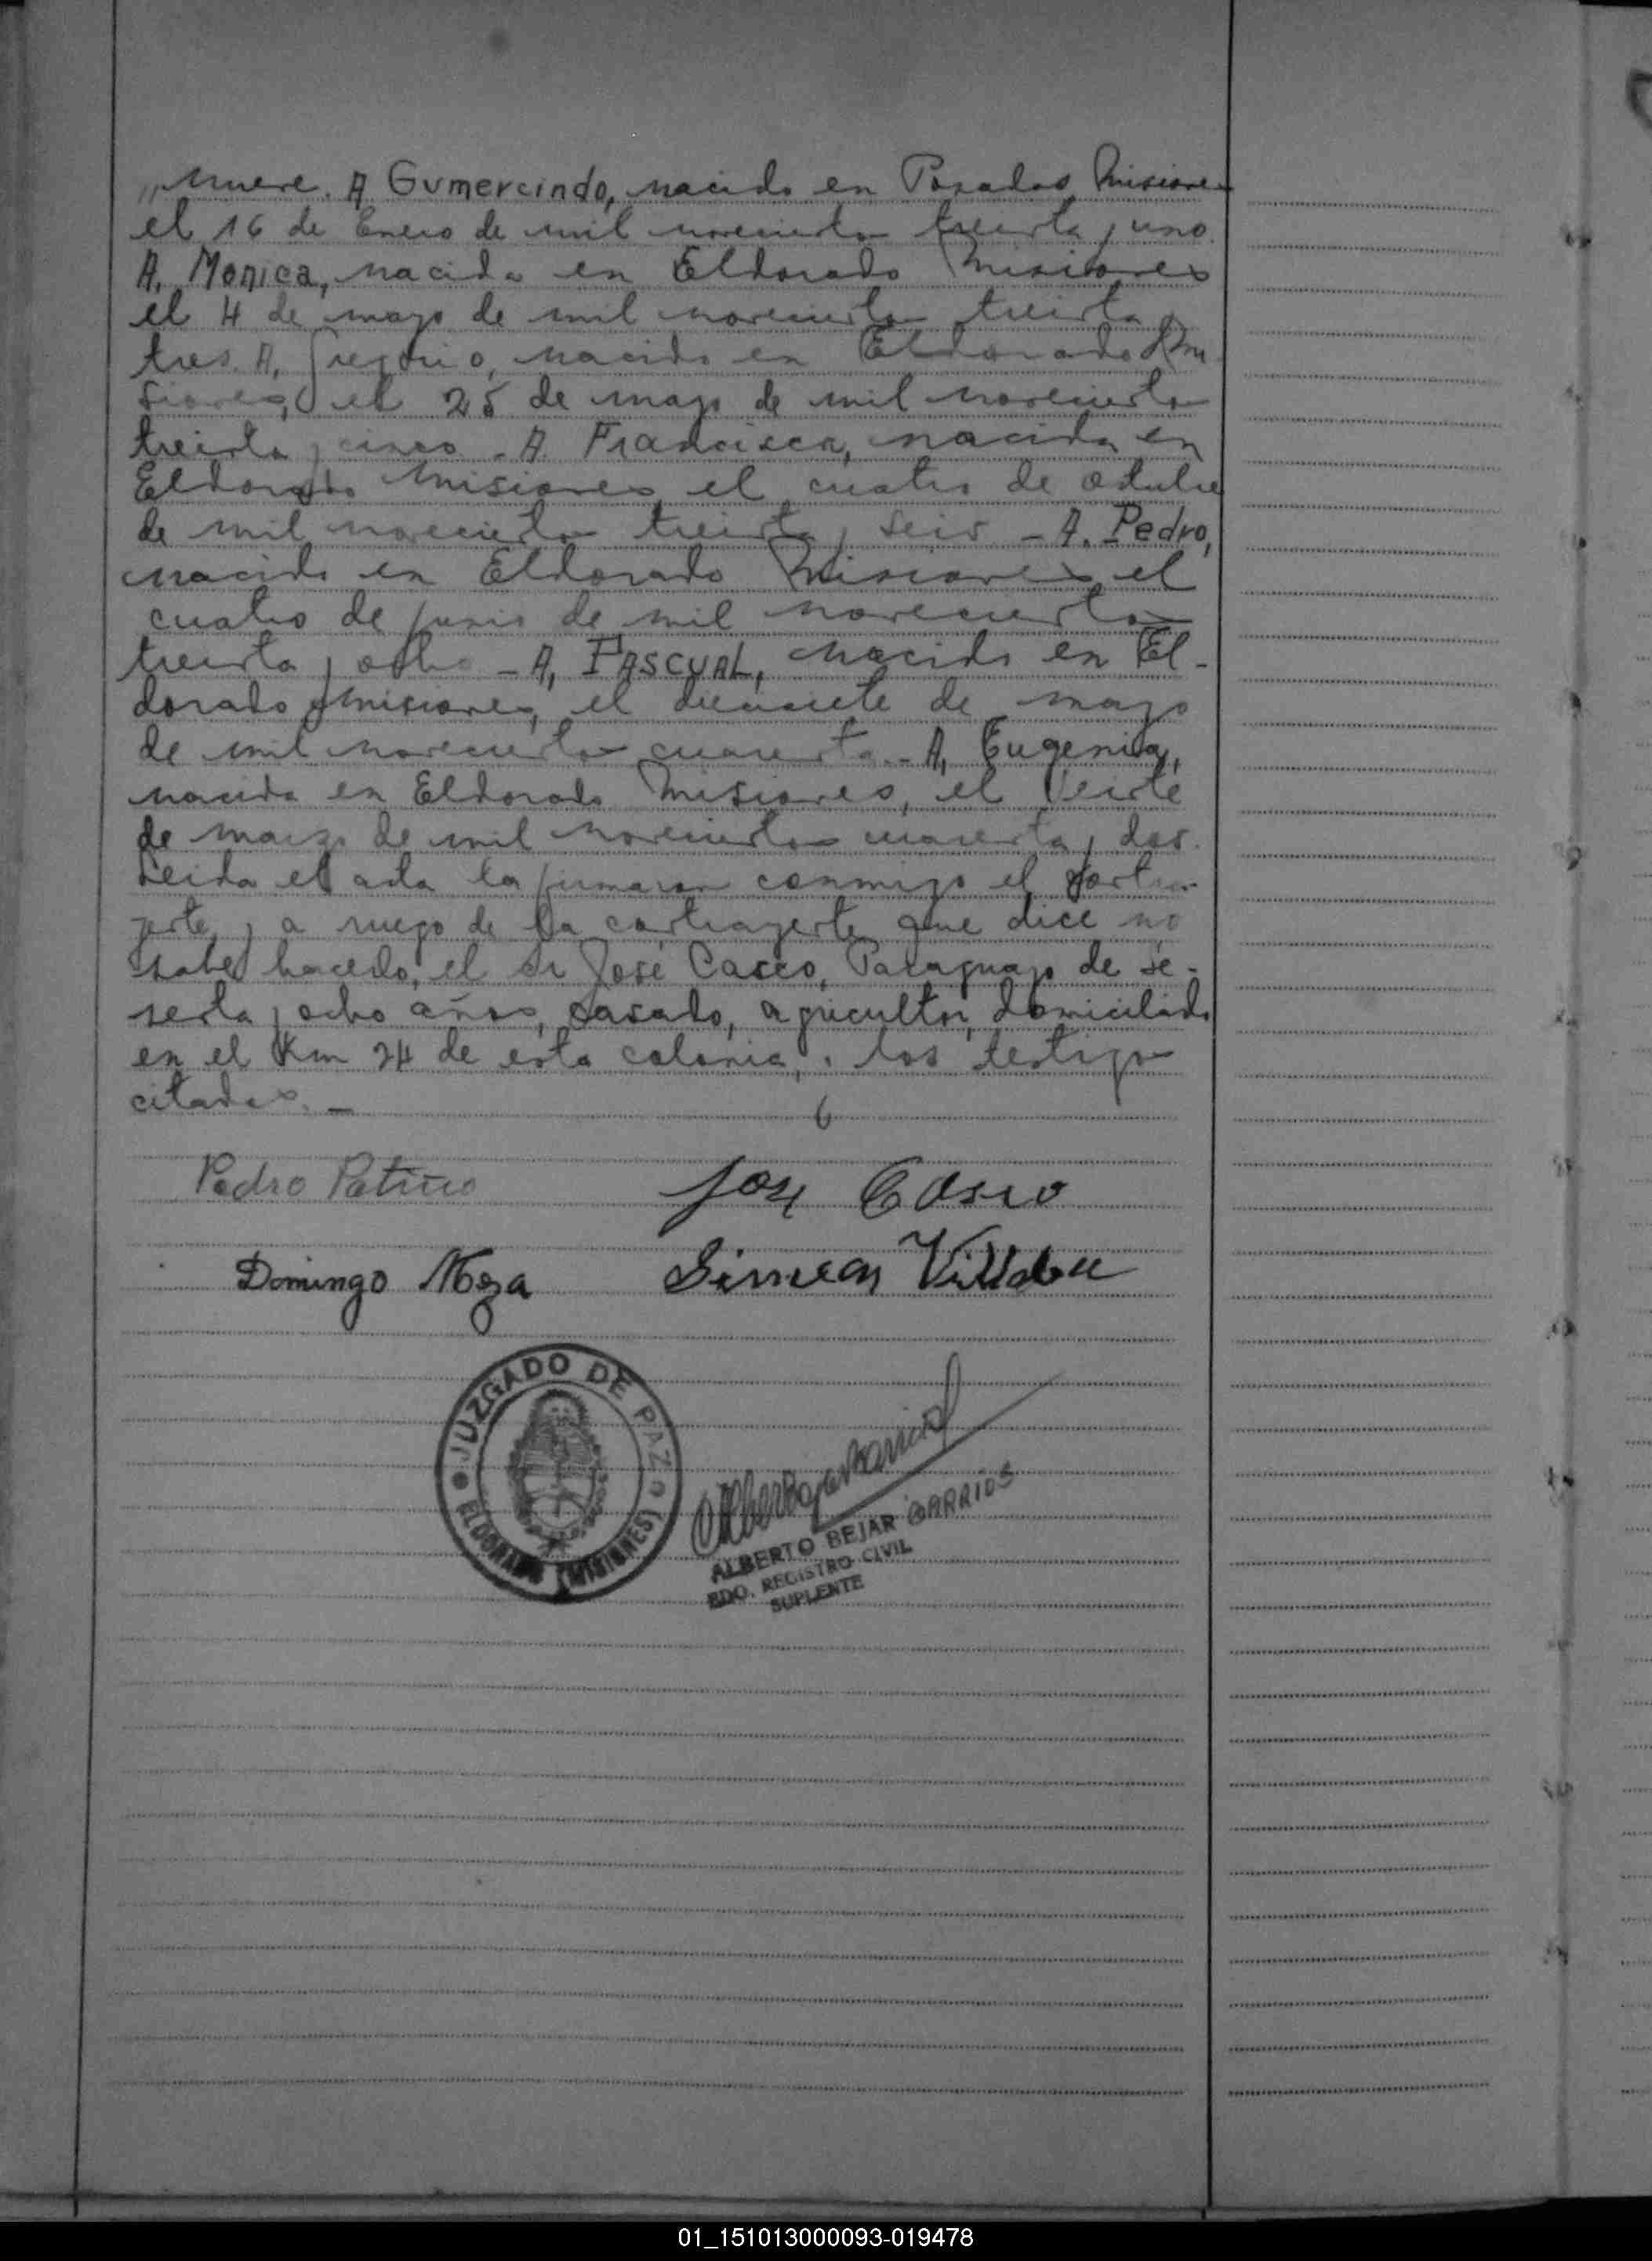 ,, nueve. A Gumercindo, nacido en Posadas Misiones
el 16 de Enero de mil novecientos treinta y uno.
A, Monica, nacida en Eldorado Misiones
el 4 de mayo de mil novecientos treinta y
tres. A, Gregorio, nacido en Eldorado Mi
siones, el 25 de mayo de mil novecientos
treinta y cinco - A. Francisca, nacida en
Eldorado Misiones, el cuatro de octubre
de mil novecientos treinta y seis - A. Pedro,
nacido en Eldorado Misiones, el
cuatro de junio de mil novecientos
treinta y ocho - A, PASCUAL, nacido en El-
dorado Misiones, el diecisiete de mayo
de mil novecientos cuarenta. - A, Eugenia,
nacida en Eldorado Misiones, el veinte
de marzo de mil novecientos cuarenta y dos.
Leida el acta la firmaron conmigo el contra-
yente, y a ruego de la contrayente que dice no
saber hacerlo, el Sr José Casco, Paraguayo de se-
senta y ocho años, casado, agricultor, domiciliado
en el Km 24 de esta colonia, y los testigos
citados. -
Pedro Patiño
José Casco
Domingo Meza
Simeon
JUZGADO DE PAZ
ELDORADO (MISIONES)
ALBERTO BEJAR BARRIOS
EDO. REGISTRO CIVIL
SUPLENTE
01_151013000093-019478